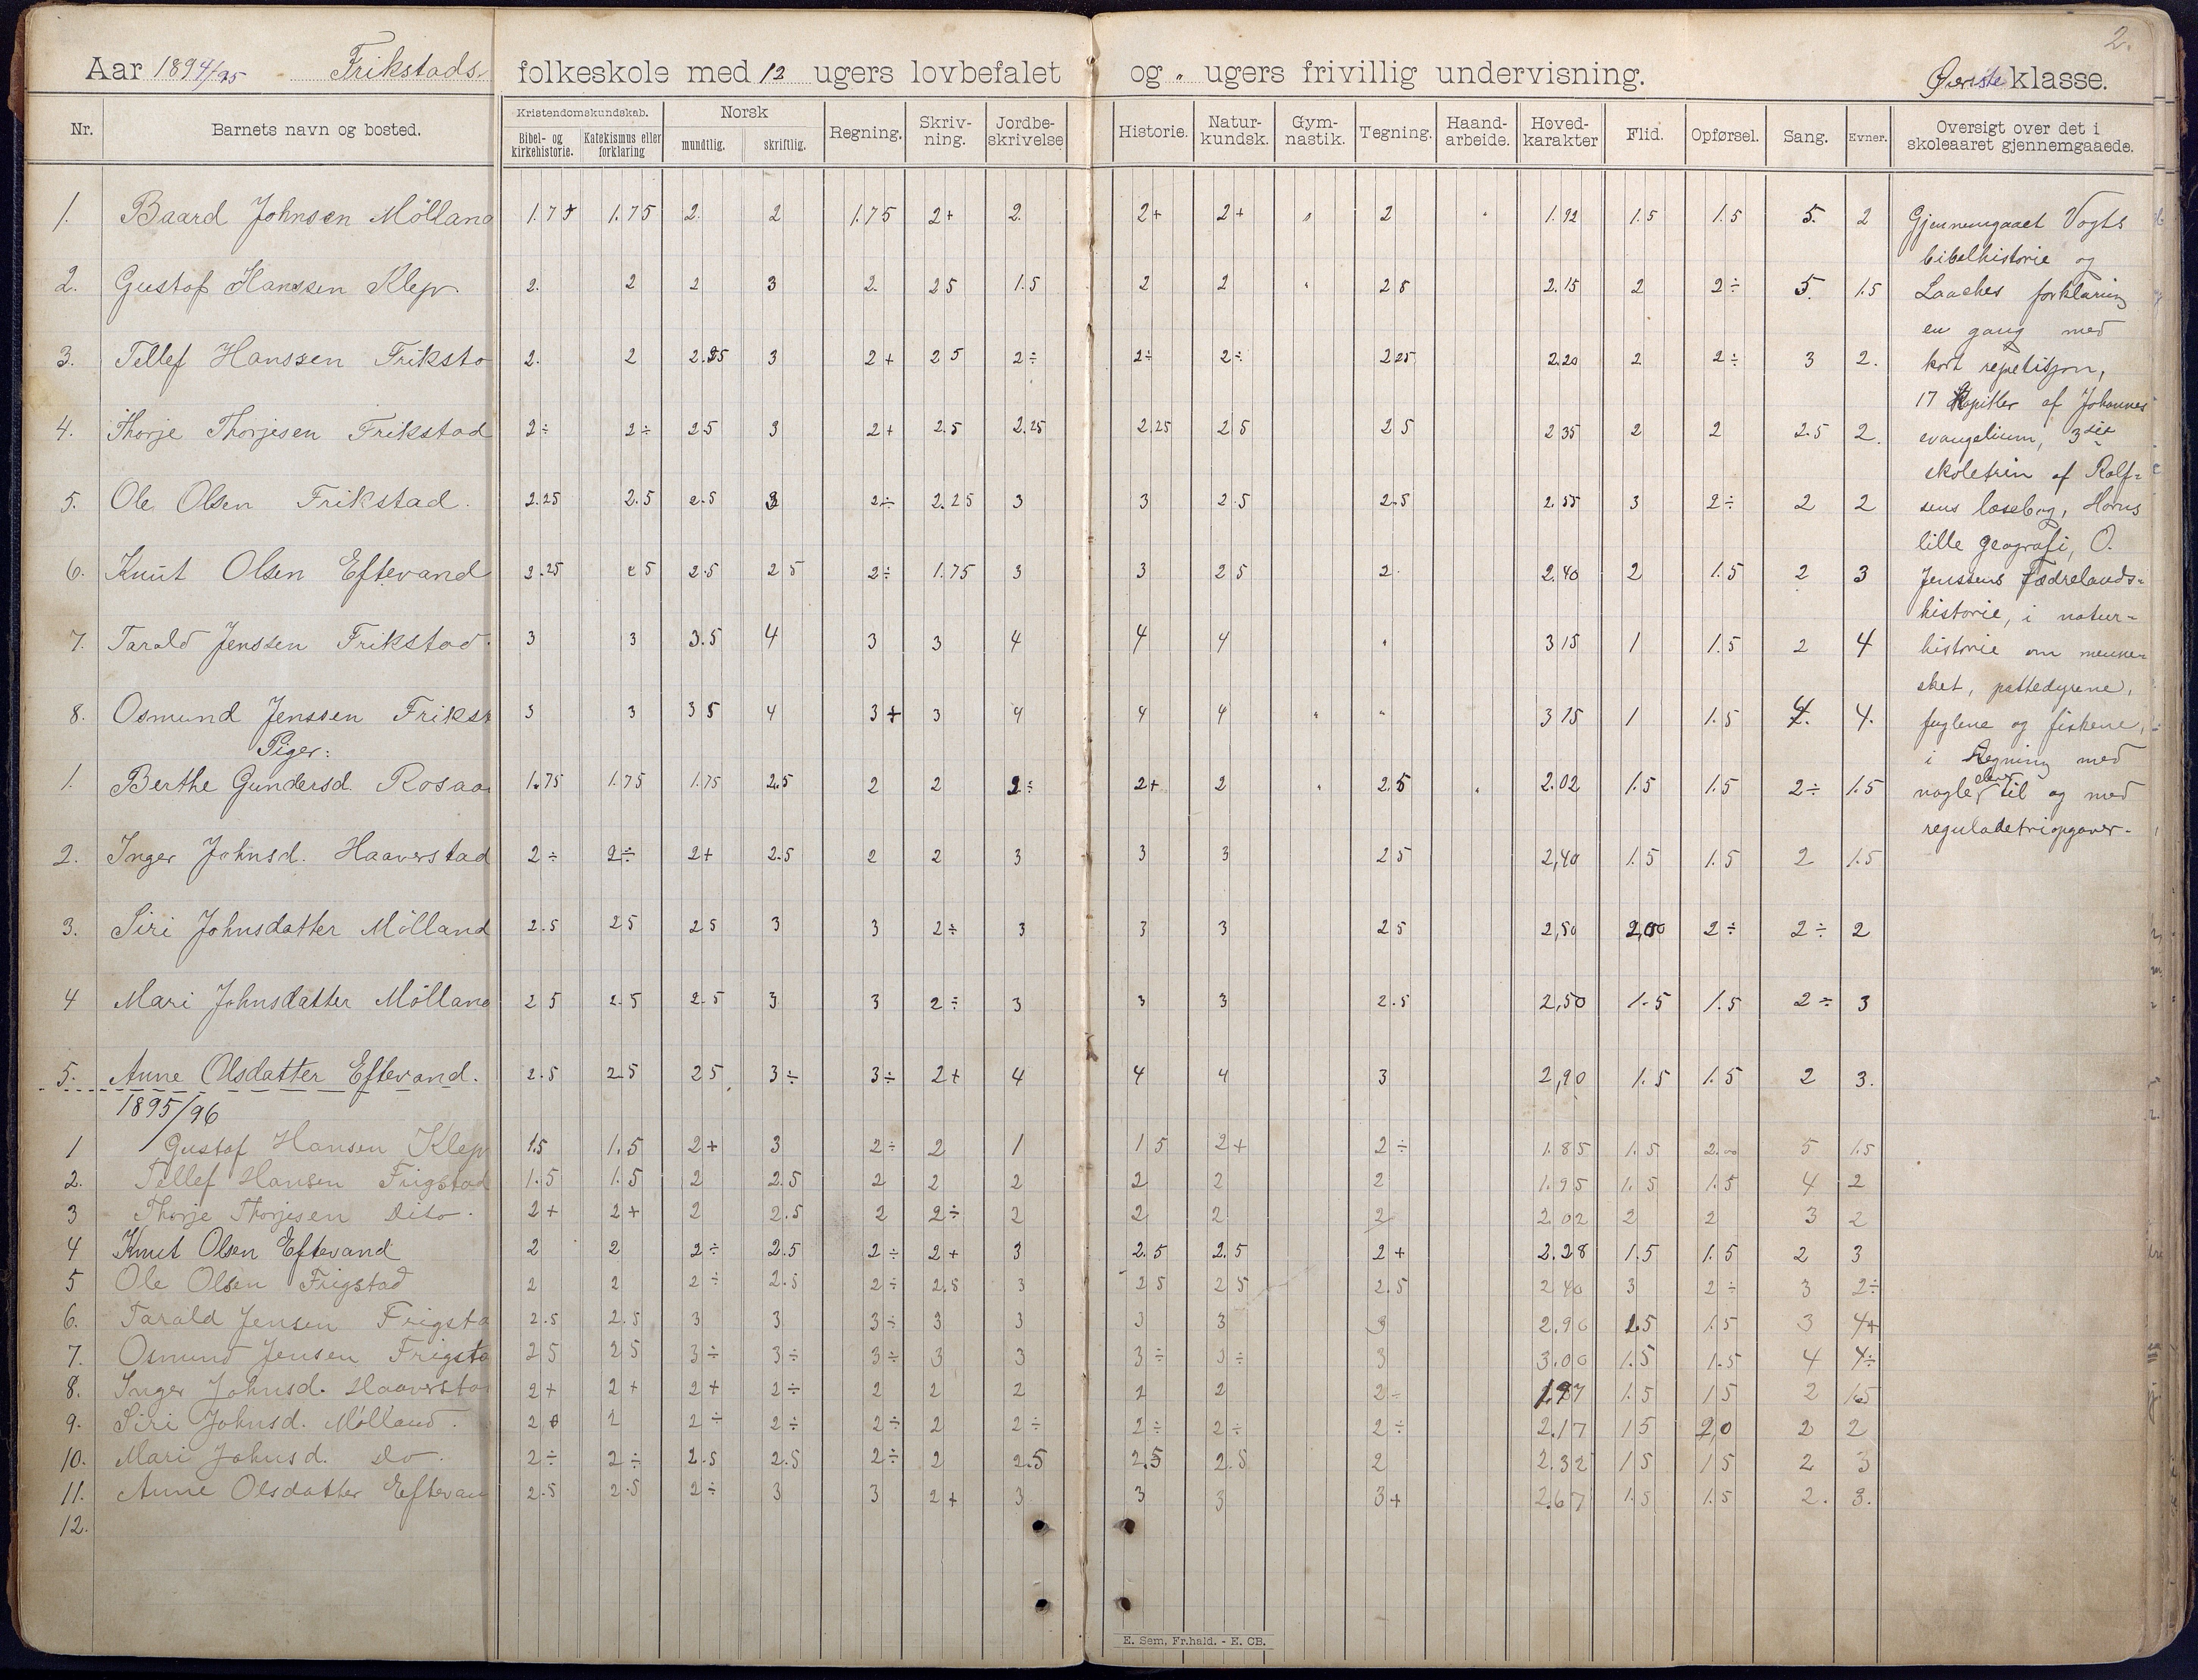 2.
Aar 1894/95 Frikstads folkeskole med 12 ugers lovbefalet og " ugers frivillig undervisning. Øverste klasse.
Nr. Barnets navn og bosted. Kristendomskundskab. Bibel- og kirkehistorie. Katekismus eller forklaring Norsk mundtlig. skriftlig. Regning. Skriv-ning. Jordbe-skrivelse Historie. Natur-kundsk. Gym-nastik. Tegning. Haand-arbeide. Hoved-karakter Flid. Opførsel. Sang. Evner. Oversigt over det i skoleaaret gjennemgaaede.
1. Baard Johnsen Mölland 1.7+ 1.75 2. 2 1.75 2+ 2. 2+ 2+ " 2 " 1.92 1.5 1.5 5. 2
2. Gustaf Hanssen Klep. 2. 2 2 3 2. 25 1.5 2 2 " 28 2.15 2 2÷ 5. 1.5
3. Tellef Hanssen Friksto 2. 2 2.25 3 2+ 25 2÷ 2÷ 2÷ 225 2.20 2 2÷ 3 2.
4. Thorje Thorjesen Frikstad 2÷ 2÷ 25 3 2+ 2.5 2.25 2.25 25 25 235 2 2 2.5 2.
5. Ole Olsen Frikstad. 2.25 2.5 2.5 3 2÷ 2.25 3 3 2.5 2.5 2.55 3 2÷ 2 2
6. Knut Olsen Eftevand 2.25 25 2.5 25 2÷ 1.75 3 3 25 2. 2.40 2 1.5 2 3
7. Tarald Jenssen Frikstad. 3 3 3.5 4 3 3 4 4 4 " 315 1 1.5 2 4
8. Osmund Jenssen Frikst 3 3 35 4 3+ 3 4 4 4 " " 315 1 1.5 4. 4.
Piger:
1. Berthe Gundersd. Rosaa 1.75 1.75 1.75 2.5 2 2 2÷ 2+ 2 " 2.5 " 2.02 1.5 1.5 2÷ 1.5
2. Inger Johnsd. Haaverstad 2÷ 2÷ 2+ 2.5 2 2 3 3 3 25 2,40 1.5 1.5 2 1.5
3. Siri Johnsdatter Mölland 2.5 25 25 3 3 2÷ 3 3 3 25 2,50 2,00 2÷ 2÷ 2
4 Mari Johnsdatter Mölland 25 2.5 2.5 3 3 2÷ 3 3 3 2.5 2,50 1.5 1.5 2÷ 3
5. Anne Olsdatter Eftevand. 2.5 2.5 25 3÷ 3÷ 2+ 4 4 4 3 2,90 1.5 1.5 2 3.
Gjennemgaaet Vogts
bibelhistorie og
Laaches forklaring
en gang med
kort repetisjon,
17 Kapitler af Johannes
evangelium, 3die
skoletrin af Rolf=
sens læsebog, Horns
lille geografi, O.
Jenssens Fædrelands=
historie, i natur=
historie om menne=
sket, pattedyrene,
fuglene og fiskene,
i Regning med
nogle elever til og med
reguladetriopgaver.
1895/96
1 Gustaf Hansen Klep 1.5 1.5 2+ 3 2÷ 2 1 15 2+ 2÷ 1.85 1.5 2.00 5 1.5
2. Tellef Hansen Frigstad 1.5 1.5 2 2.5 2 2 2 2 2 2 1.95 1.5 1.5 4 2
3 Thorje Thorjesen Dito. 2+ 2+ 2 2.5 2 2÷ 2 2 2 2 2.02 2 2 3 2
4 Knut Olsen Eftevand 2 2 2÷ 2.5 2÷ 2+ 3 2.5 2.5 2+ 2.28 1.5 1.5 2 3
5 Ole Olsen Frigstad 2 2 2÷ 2.5 2÷ 2.5 3 25 25 2.5 240 3 2÷ 3 2÷
6. Tarald Jensen Frigsta 2.5 2.5 3 3 3÷ 3 3 3 3 3 2.90 1.5 1.5 3 4+
7. Osmund Jensen Frigsta 25 25 3÷ 3÷ 3÷ 3 3 3÷ 3÷ 3 3.00 1.5 1.5 4 4÷
8. Inger Johnsd. Haaversta 2+ 2+ 2+ 2÷ 2 2 2 2 2 2- 1.97 1.5 15 2 1.5
9. Siri Johnsd. Mölland. 2+ 2 2÷ 2÷ 2÷ 2 2÷ 2÷ 2÷ 2÷ 2.17 15 2,0 2 2
10. Mari Johnsd. Do. 2÷ 2÷ 2.5 2.5 2÷ 2 2.5 2.5 2.5 2 2.32 15 15 2 3
11. Anne Olsdatter Eftevan 2.5 2.5 2÷ 3 3 2+ 3 3 3 3+ 2.67 1.5 1.5 2. 3.
12.
E. Sem, Fr.hald. - E. CB.